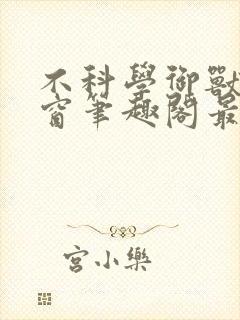 不科學御獸
窗筆趣閣最
宮小樂